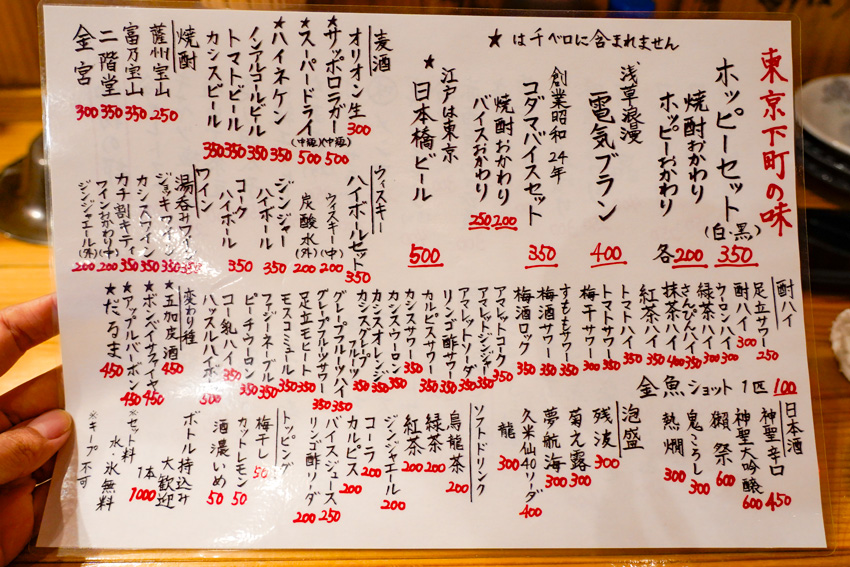 ★は千ベロに含まれません
東京下町の味
ホッピーセット(白・黒) 350
焼酎おかわり
ホッピーおかわり 各200
浅草浪漫
電気ブラン 400
創業昭和24年
コダマバイスセット 350
焼酎おかわり 200
バイスおかわり 250
江戸は東京
★日本橋ビール 500
麦酒
オリオン生 300
★サッポロラガー(中瓶) 500
★スーパードライ(中瓶) 500
★ハイネケン 350
ノンアルコールビール 350
トマトビール 350
カシスビール 350
焼酎
薩州宝山 250
富乃宝山 350
二階堂 350
金宮 300
ウィスキー
ハイボールセット 350
ウィスキー(中) 200
炭酸水(外) 200
ジンジャーハイボール 350
コークハイボール 350
ワイン
湯呑みワイン 350
ジョキワイン 350
カシスワイン 350
カチ割キティ 350
ワインおかわり(中) 200
ジンジャエール(外) 200
酎ハイ
足立サワー 250
酎ハイ 300
ウーロンハイ 300
緑茶ハイ 300
さんぴんハイ 350
抹茶ハイ 400
紅茶ハイ 350
トマトハイ 350
トマトサワー 350
梅干サワー 350
すももサワー 350
梅酒サワー 350
梅酒ロック 350
アマレットコーク 350
アマレットジンジャー 350
アマレットソーダ 350
リンゴ酢サワー 350
カルピスサワー 350
カシスサワー 350
カシスウーロン 350
カシスオレンジ 350
カシスグレープフルーツ 350
グレープフルーツハイ 350
グレープフルーツサワー 350
足立モヒート 350
モスコミュール 350
ファジーネーブル 350
ピーチウーロン 350
コー乳ハイ 350
ハッスルハイボ 500
変わり種
★五加皮酒 450
★ボンベイサファイヤ 450
★アップルバーボン 450
★だるま 450
金魚ショット 1匹 100
日本酒
神聖辛口 450
神聖大吟醸 600
獺祭 600
鬼ころし 300
熱燗 300
泡盛
残波 300
菊之露 300
夢航海 300
久米仙40ソーダ 400
龍 300
ソフトドリンク
烏龍茶 200
緑茶 200
紅茶 200
ジンジャエール 200
コーラ 200
カルピス 200
バイスジュース 250
リンゴ酢ソーダ 200
トッピング
梅干し 50
カットレモン 50
酒濃いめ 50
ボトル持込み大歓迎
1本 1000
※セット料 水、氷無料
※キープ不可